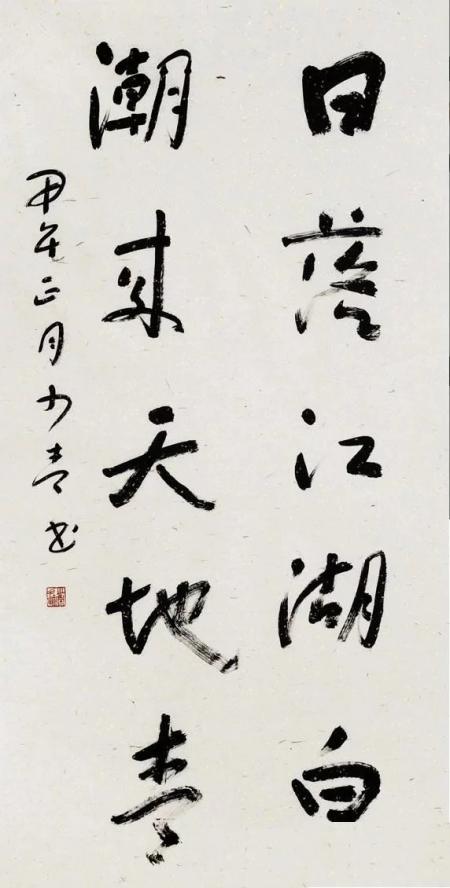 日落江湖白
潮来天地青
甲午正月少青书